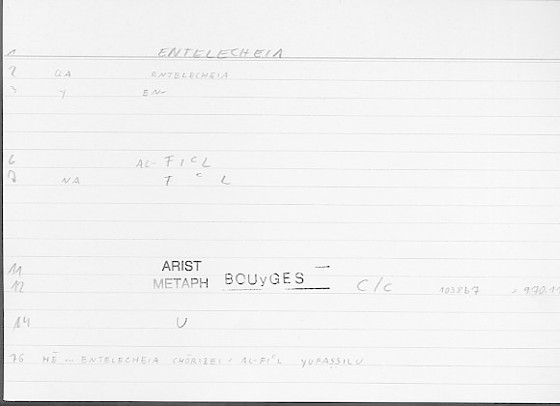 1 ENTELECHEIA
2 GA ENTELECHEIA
3 Y EN~
6 AL-FIᶜL
NA FᶜL
11 ARIST
12 METAPH BOUyGES C/C 103867 = 970.11
14 U
76 HĒ ~ ENTELECHEIA CHŌRIZEI / AL-FIᶜL YUFAṢṢILU